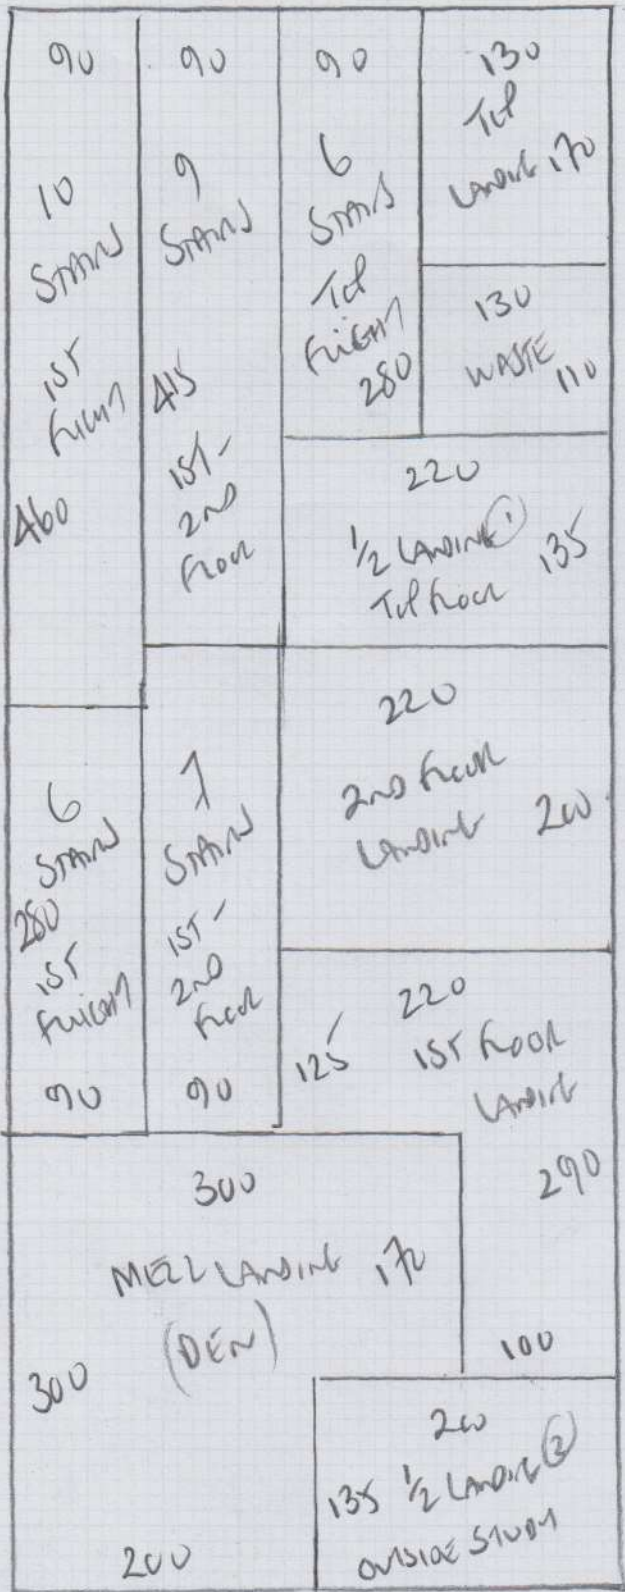 90
10
STAIRS
1ST
FLIGHT
460
90
9
STAIRS
415
1ST-
2ND
FLOOR
90
6
STAIRS
TOP
FLIGHT
280
130
TOP
LANDING 170
130
WASTE 110
220
1/2 LANDING ①
135
TOP FLOOR
220
2ND FLOOR
LANDING 200
6
STAIRS
280
1ST
FLIGHT
90
7
STAIRS
1ST-
2ND
FLOOR
90
220
125 1ST FLOOR
LANDING
290
100
300
MEZZ LANDING 170
(DEN)
300
200
200
135 1/2 LANDING ②
OUTSIDE STUDY